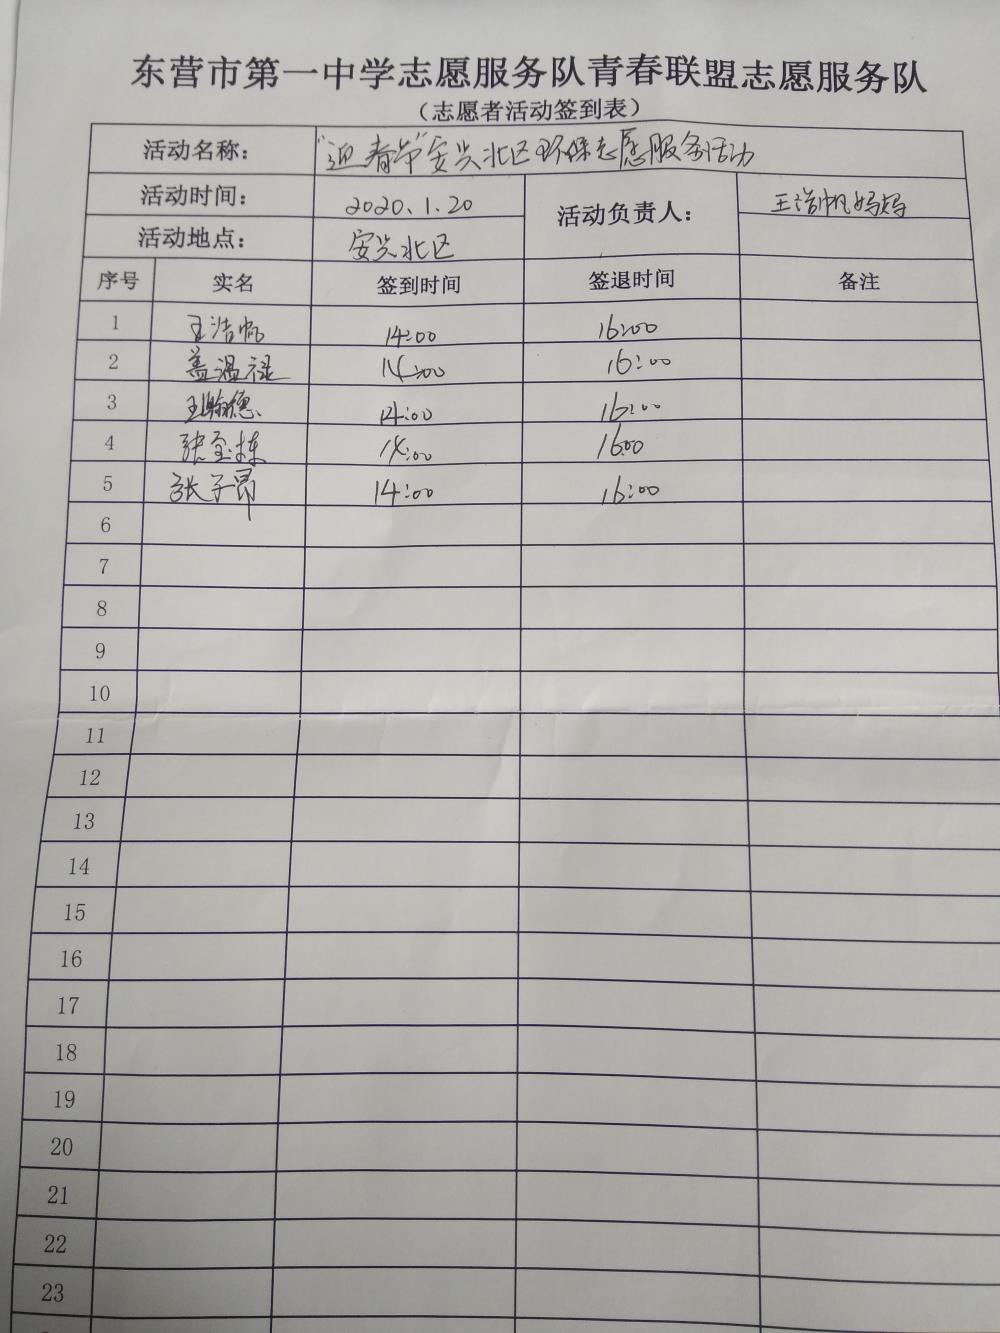 东营市第一中学志愿服务队青春联盟志愿服务队
（志愿者活动签到表）
活动名称： "迎春节"安兴北区环保志愿服务活动
活动时间： 2020.1.20 活动负责人： 王浩帆妈妈
活动地点： 安兴北区
序号 实名 签到时间 签退时间 备注
1 王浩帆 14:00 16:00
2 盖温禄 14:00 16:00
3 王翰德 14:00 16:00
4 张玺栋 14:00 16:00
5 张子昂 14:00 16:00
6
7
8
9
10
11
12
13
14
15
16
17
18
19
20
21
22
23